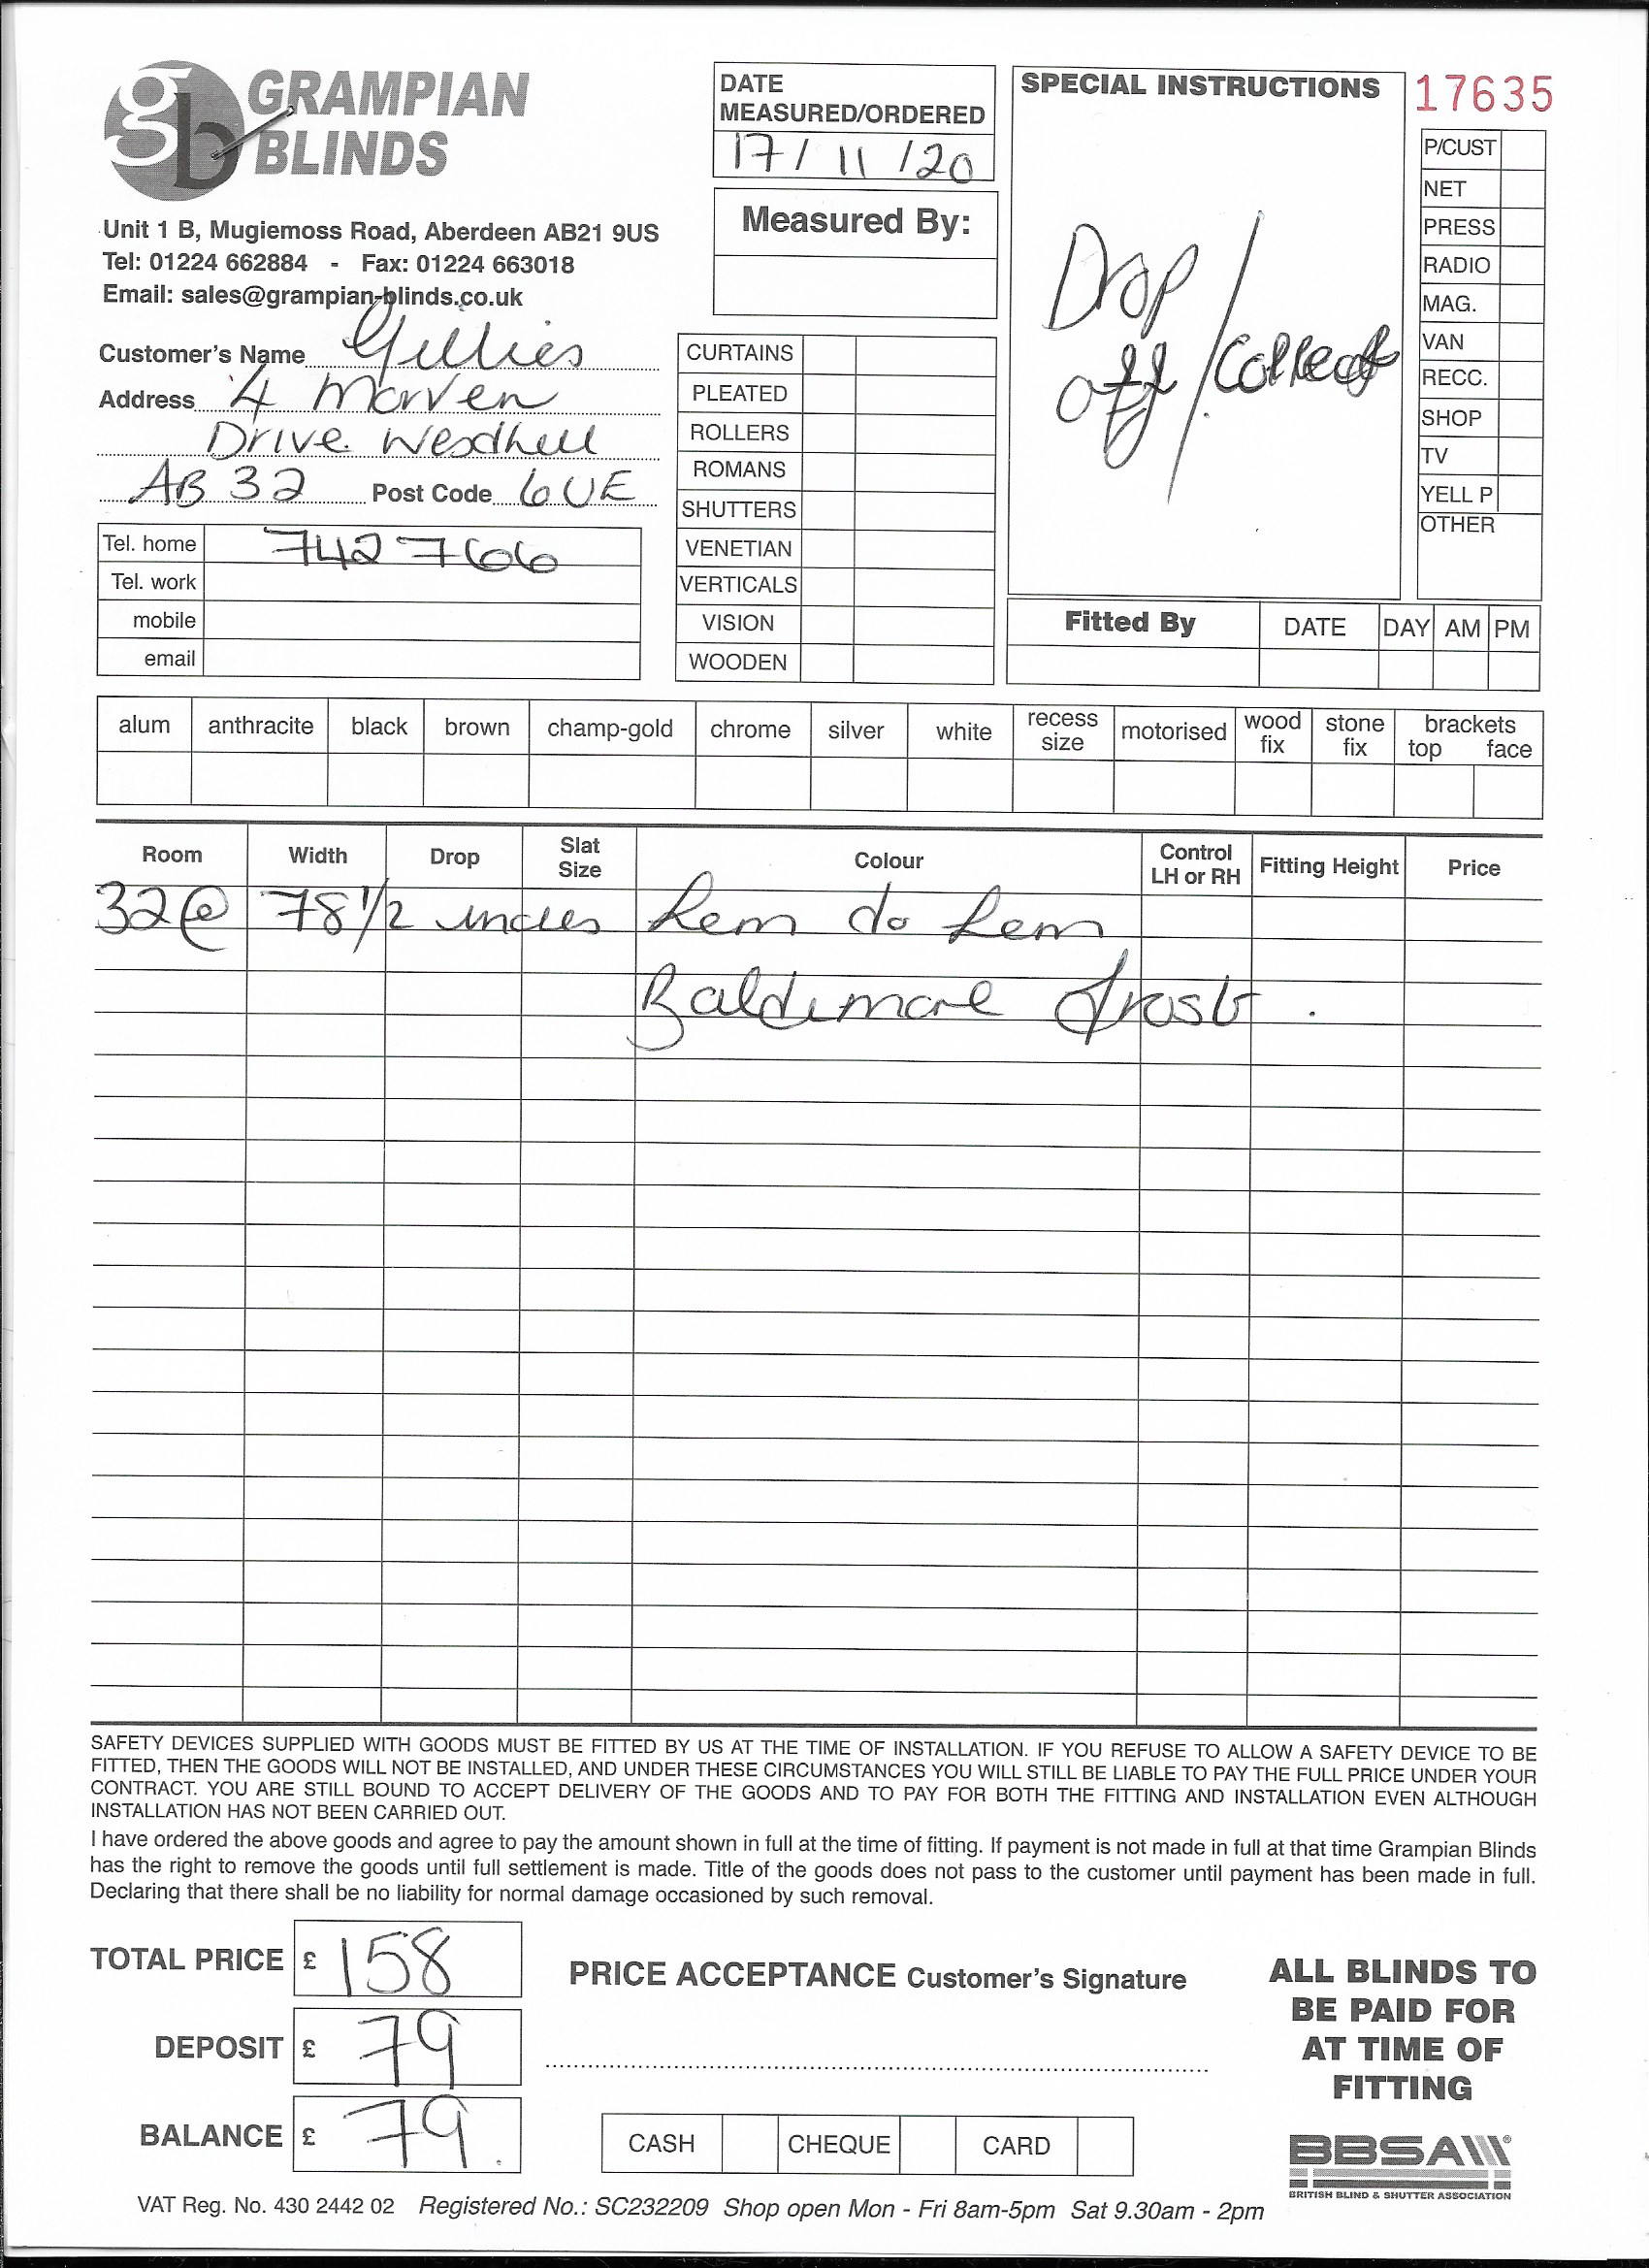 gb GRAMPIAN
BLINDS
Unit 1 B, Mugiemoss Road, Aberdeen AB21 9US
Tel: 01224 662884 - Fax: 01224 663018
Email: sales@grampian-blinds.co.uk
DATE
MEASURED/ORDERED
17/11/20
Measured By:
SPECIAL INSTRUCTIONS
Drop
off/collect
17635
P/CUST
NET
PRESS
RADIO
MAG.
VAN
RECC.
SHOP
TV
YELL P
OTHER
Customer's Name Gillies
Address 4 Morven
Drive Westhill
AB32 Post Code 6UE
Tel. home 742766
Tel. work
mobile
email
CURTAINS
PLEATED
ROLLERS
ROMANS
SHUTTERS
VENETIAN
VERTICALS
VISION
WOODEN
Fitted By DATE DAY AM PM
alum anthracite black brown champ-gold chrome silver white recess size motorised wood fix stone fix brackets top face
Room Width Drop Slat Size Colour Control LH or RH Fitting Height Price
32@ 78 1/2 inches hem to hem
Baltimore frost.
SAFETY DEVICES SUPPLIED WITH GOODS MUST BE FITTED BY US AT THE TIME OF INSTALLATION. IF YOU REFUSE TO ALLOW A SAFETY DEVICE TO BE
FITTED, THEN THE GOODS WILL NOT BE INSTALLED, AND UNDER THESE CIRCUMSTANCES YOU WILL STILL BE LIABLE TO PAY THE FULL PRICE UNDER YOUR
CONTRACT. YOU ARE STILL BOUND TO ACCEPT DELIVERY OF THE GOODS AND TO PAY FOR BOTH THE FITTING AND INSTALLATION EVEN ALTHOUGH
INSTALLATION HAS NOT BEEN CARRIED OUT.
I have ordered the above goods and agree to pay the amount shown in full at the time of fitting. If payment is not made in full at that time Grampian Blinds
has the right to remove the goods until full settlement is made. Title of the goods does not pass to the customer until payment has been made in full.
Declaring that there shall be no liability for normal damage occasioned by such removal.
TOTAL PRICE £ 158
DEPOSIT £ 79
BALANCE £ 79.
PRICE ACCEPTANCE Customer's Signature
CASH CHEQUE CARD
ALL BLINDS TO
BE PAID FOR
AT TIME OF
FITTING
BBSA®
BRITISH BLIND & SHUTTER ASSOCIATION
VAT Reg. No. 430 2442 02 Registered No.: SC232209 Shop open Mon - Fri 8am-5pm Sat 9.30am - 2pm